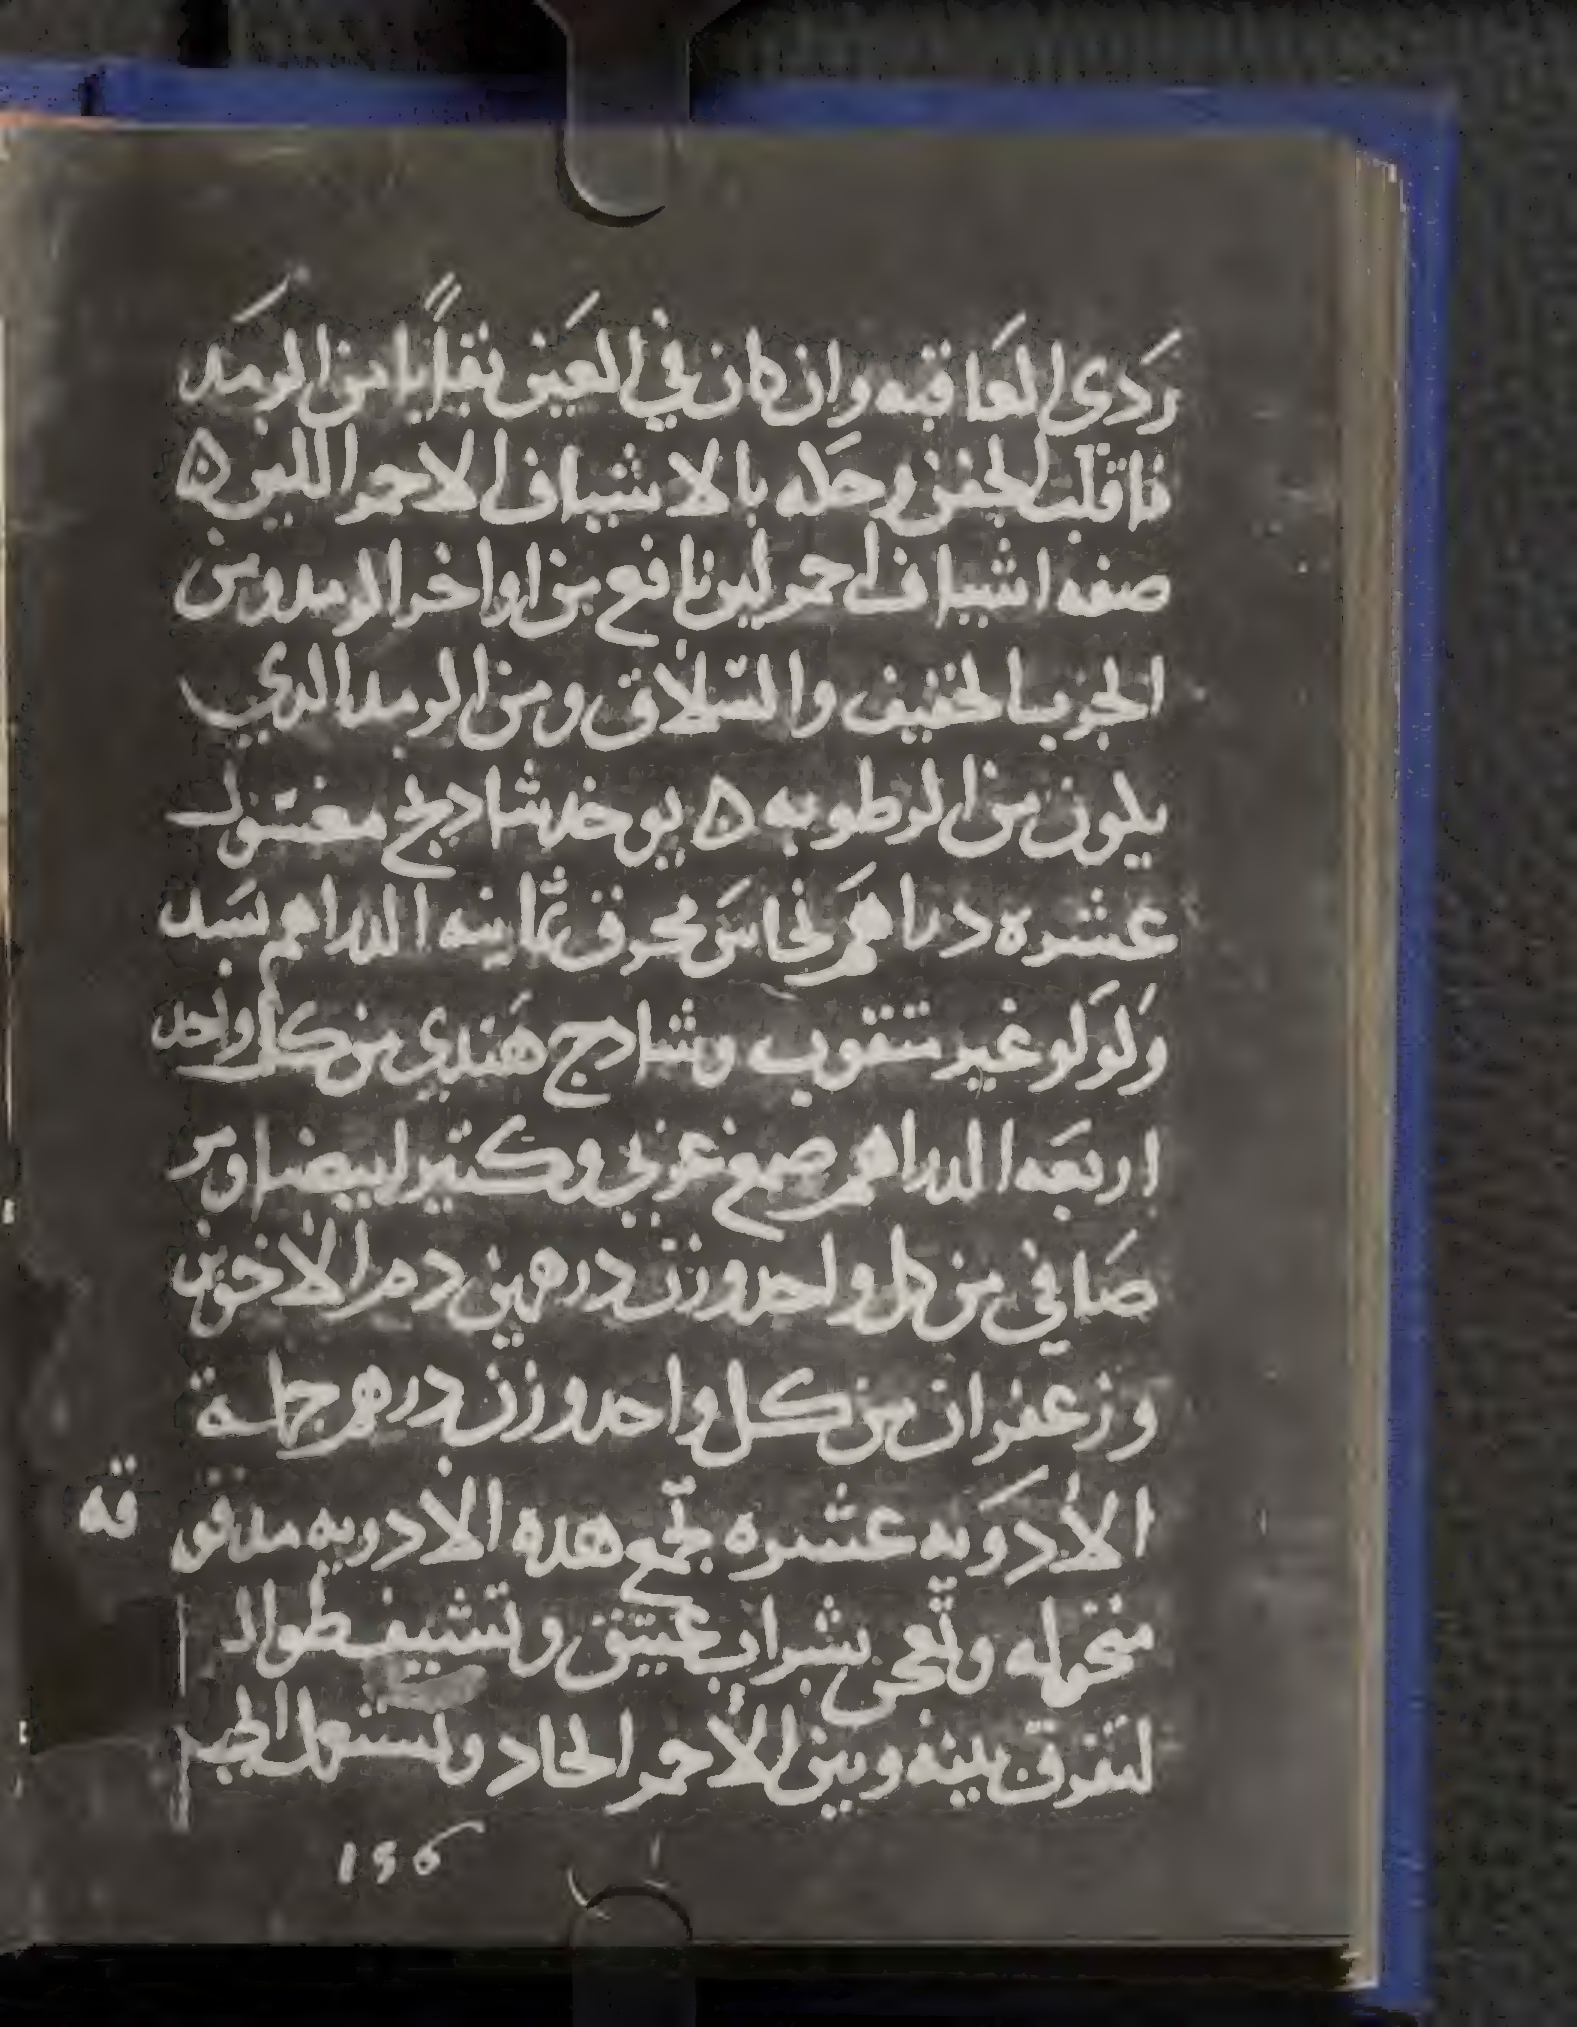 ردى العاقبه وان كان في العين بقايا من الرمد
فاقلب الجفن وحله بالاشياف الاحمر اللين ه
صفه اشياف احمر لين نافع من اواخر الرمد ومن
الجرب الخفيف والسلاق ومن الرمد الدي
يكون من الرطوبه ه يوخد شادنج مغسول
عشره دراهم نحاس محرق ثمانيه الدراهم بسد
ولولو غير مثقوب وشادج هندي من كل واحد
اربعه الدراهم صمغ عربي وكثيرا بيضا ومر
صافي من كل واحد وزن درهمين دم الاخوين
وزعفران من كل واحد وزن درهم جملة
الادويه عشره تجمع هده الادويه مدقوقه
منخوله وتعجن بشراب عتيق وتشيف طوال
لتفرق بينه وبين الاحمر الحاد وتستعمل
196